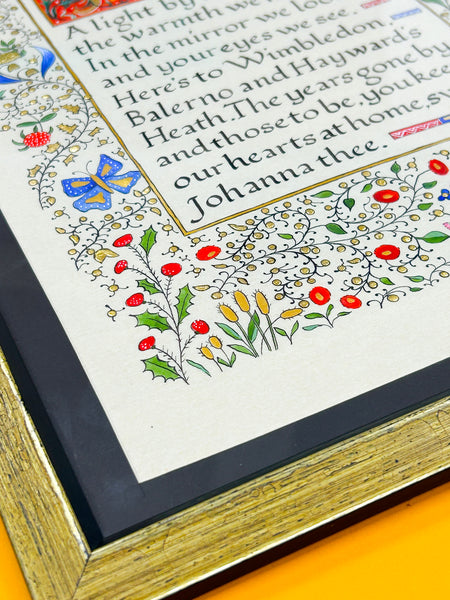 A light by
the warmth we
In the mirror we loo
and your eyes we see.
Here's to Wimbledon
Balerno and Hayward's
Heath. The years gone by
and those to be, you kee
our hearts at home, su
Johanna thee.